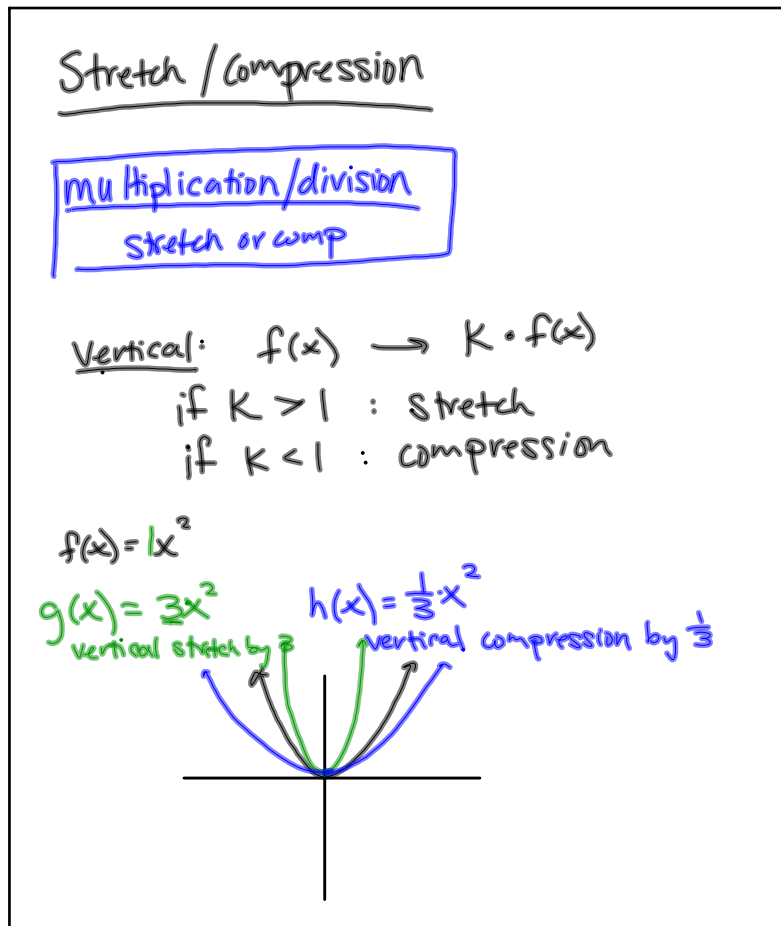 Stretch / Compression
multiplication/division
stretch or comp
Vertical: f(x) → K · f(x)
if K > 1 : stretch
if K < 1 : compression
f(x) = 1x²
g(x) = 3x² h(x) = 1/3 · x²
vertical stretch by 3 vertical compression by 1/3